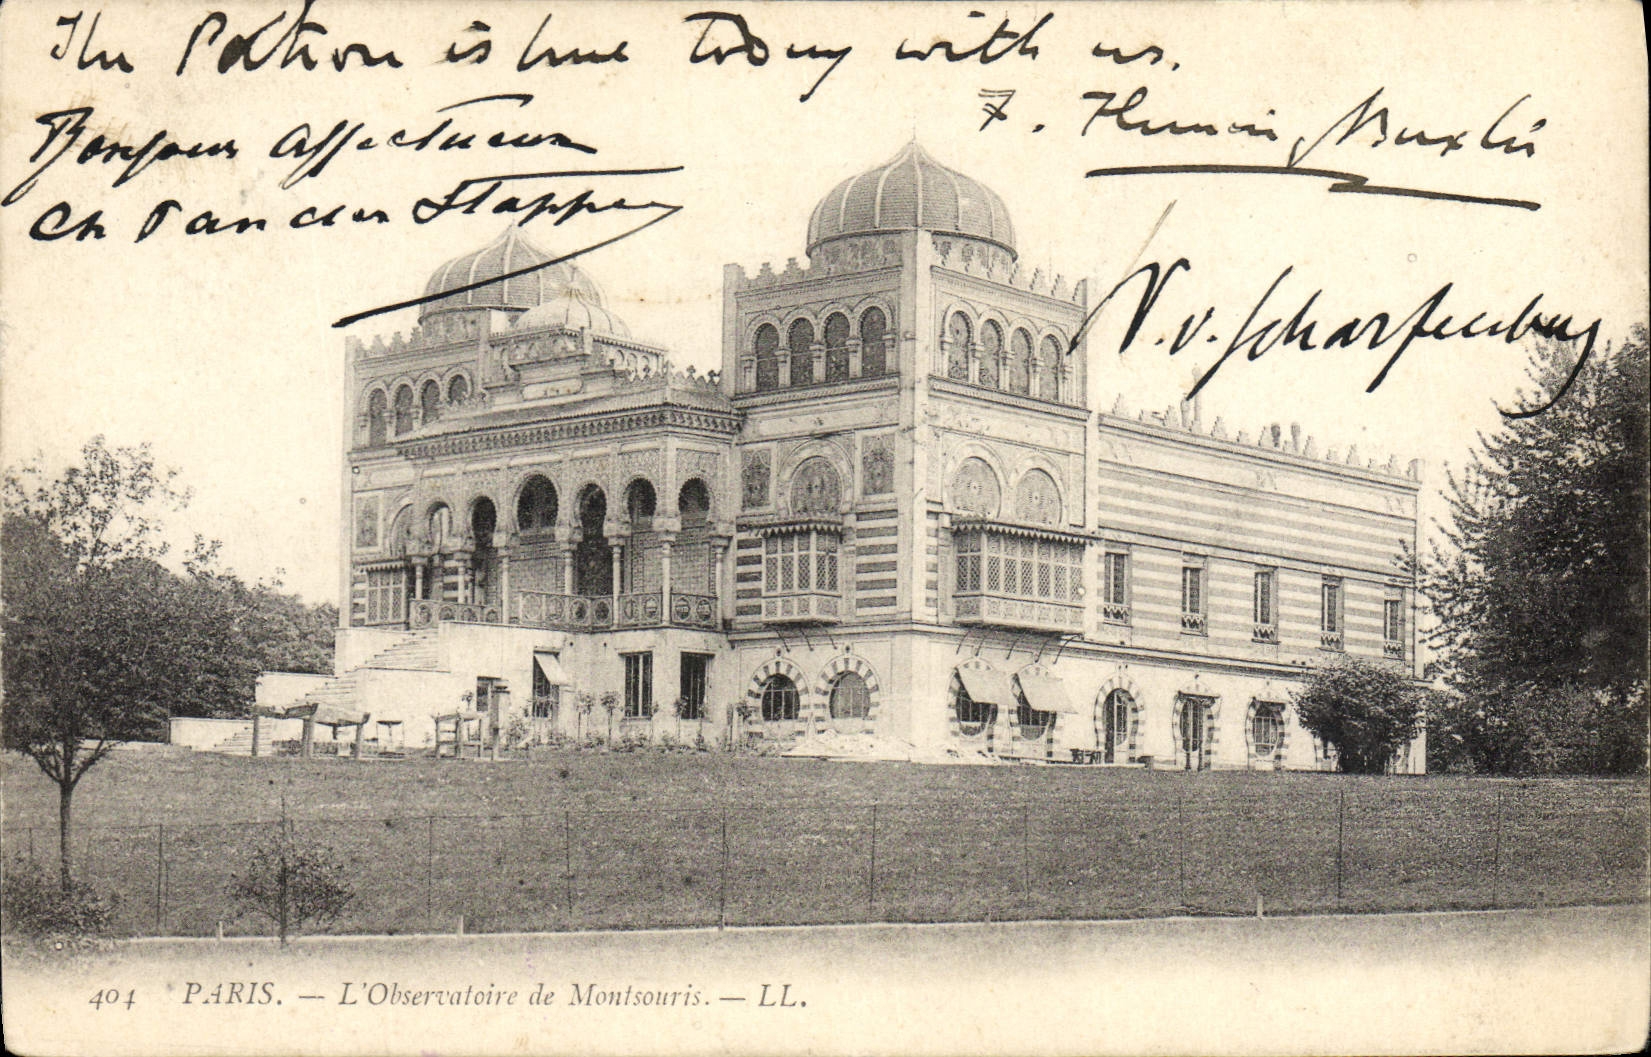 The Patron is here today with us.
F.
Bonjour affectueux
Ch Van der Stappen
V. v. Scharfenberg
404 PARIS. — L'Observatoire de Montsouris. — LL.